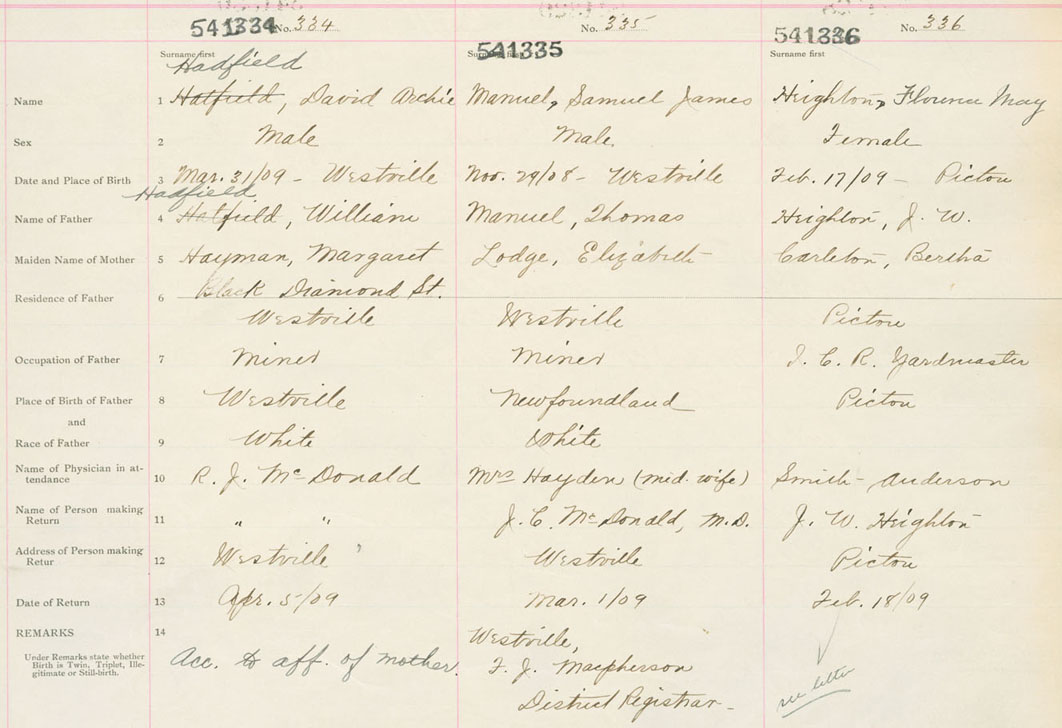 541334 No. 334
541335 No. 335
541336 No. 336
Surname first
Surname first
Surname first
Hadfield
Name 1 Hatfield, David Archie
Manuel, Samuel James
Heighton, Florence May
Sex 2 Male
Male.
Female
Date and Place of Birth 3 Mar. 31/09 - Westville
Nov. 29/08 - Westville
Feb. 17/09 - Pictou
Hadfield
Name of Father 4 Hatfield, William
Manuel, Thomas
Heighton, J. W.
Maiden Name of Mother 5 Hayman, Margaret
Lodge, Elizabeth
Carleton, Bertha
Residence of Father 6 Black Diamond St.
Westville
Westville
Pictou
Occupation of Father 7 Miner
Miner
I. C. R. Yardmaster
Place of Birth of Father 8 Westville
Newfoundland
Pictou
and
Race of Father 9 White
White
Name of Physician in at-
tendance 10 R. J. McDonald
Mrs Hayden (mid. wife)
Smith - Anderson
Name of Person making
Return 11 " "
J. C. McDonald, M.D.
J. W. Heighton
Address of Person making
Retur 12 Westville
Westville
Pictou
Date of Return 13 Apr. 5/09
Mar. 1/09
Feb. 18/09
REMARKS 14
Under Remarks state whether
Birth is Twin, Triplet, Ille-
gitimate or Still-birth.
Acc. to aff. of mother.
Westville,
F. J. Macpherson
District Registrar -
see letter